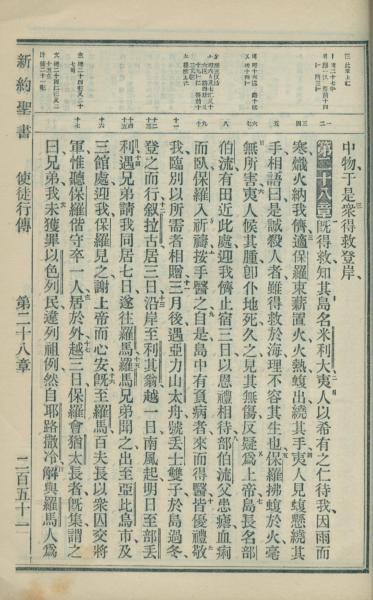 中物于是衆得救登岸
第二十八章既得救知其島名米利大夷人以希有之仁待我因雨而
寒熾火納我儕適保羅束薪置火火熱蝮出繞其手夷人見蝮懸繞其
手相語曰是誠殺人者雖得救於海理不容其生也保羅拂蝮於火毫
無所害夷人候其腫卽仆地死久之見其無傷反疑爲上帝島長名部
伯流有田近此處迎我儕止宿三日以恩禮相待部伯流父患瘧血痢
而臥保羅入祈禱按手醫之自是島中有負病者來而得醫皆優禮敬
我臨別以所需者相贈三月後遇亞力山太舟號丟士雙子於島過冬
登之而行敘拉古居三日沿岸至利其翁越一日南風起明日至部丟
利遇兄弟請我同居七日遂往羅馬羅馬兄弟聞之出至亞比烏市及
三館處迎我保羅見之謝上帝而心安旣至羅馬百夫長以衆囚交將
軍惟聽保羅偕守卒一人居於外越三日保羅會猶太長者旣集謂之
曰兄弟我未獲罪以色列民違列祖例然自耶路撒冷解與羅馬人爲
新約聖書
使徒行傳
第二十八章
二百五十二